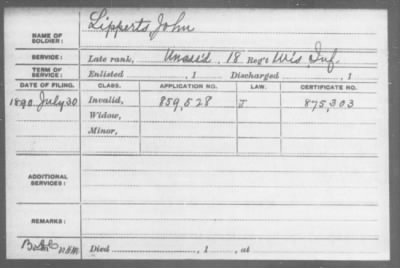 NAME OF SOLDIER: Lipperts, John
SERVICE: Late rank, Unass'd 18 Reg't Wis Inf.
TERM OF SERVICE: Enlisted , 1 Discharged , 1
DATE OF FILING. CLASS. APPLICATION NO. LAW. CERTIFICATE NO.
1890 July 30 Invalid, 859,528 J 875,303
Widow,
Minor,
ADDITIONAL SERVICES:
REMARKS:
Died , 1 , at